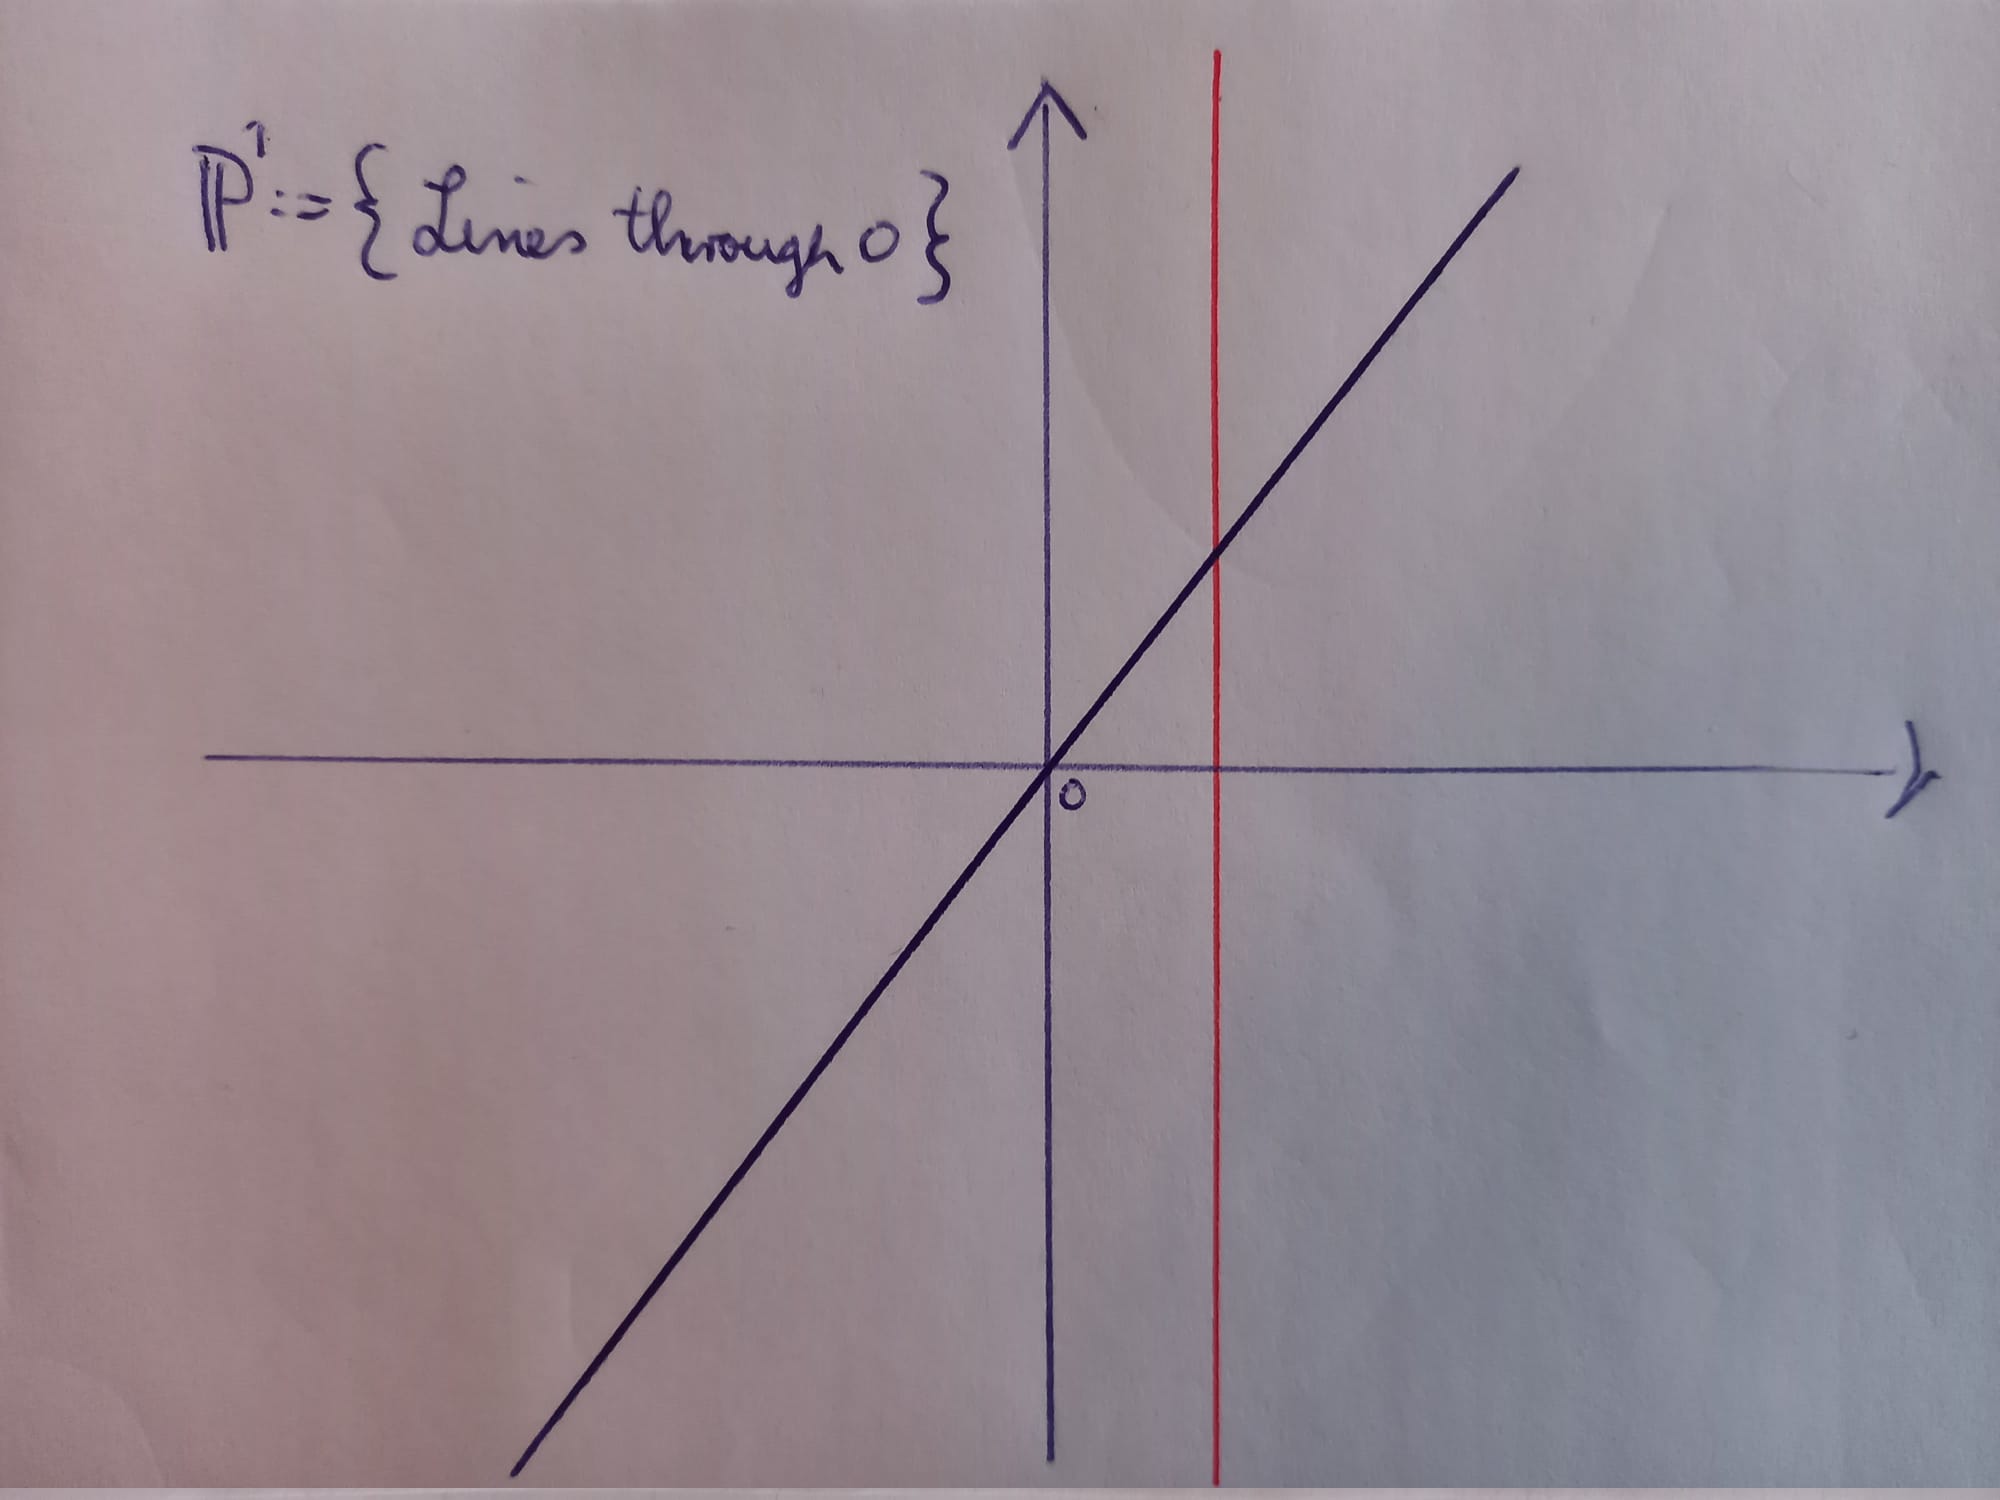 ℙ¹ := { Lines through 0 }
0